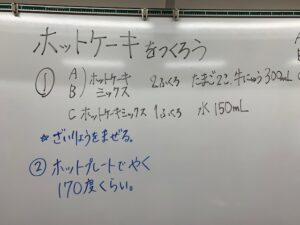 ホットケーキをつくろう
① A) ホットケーキ 2ふくろ たまご2こ、牛にゅう300mL
B) ミックス
C ホットケーキミックス 1ふくろ 水 150mL
※ざいりょうをまぜる。
② ホットプレートでやく
170度くらい。